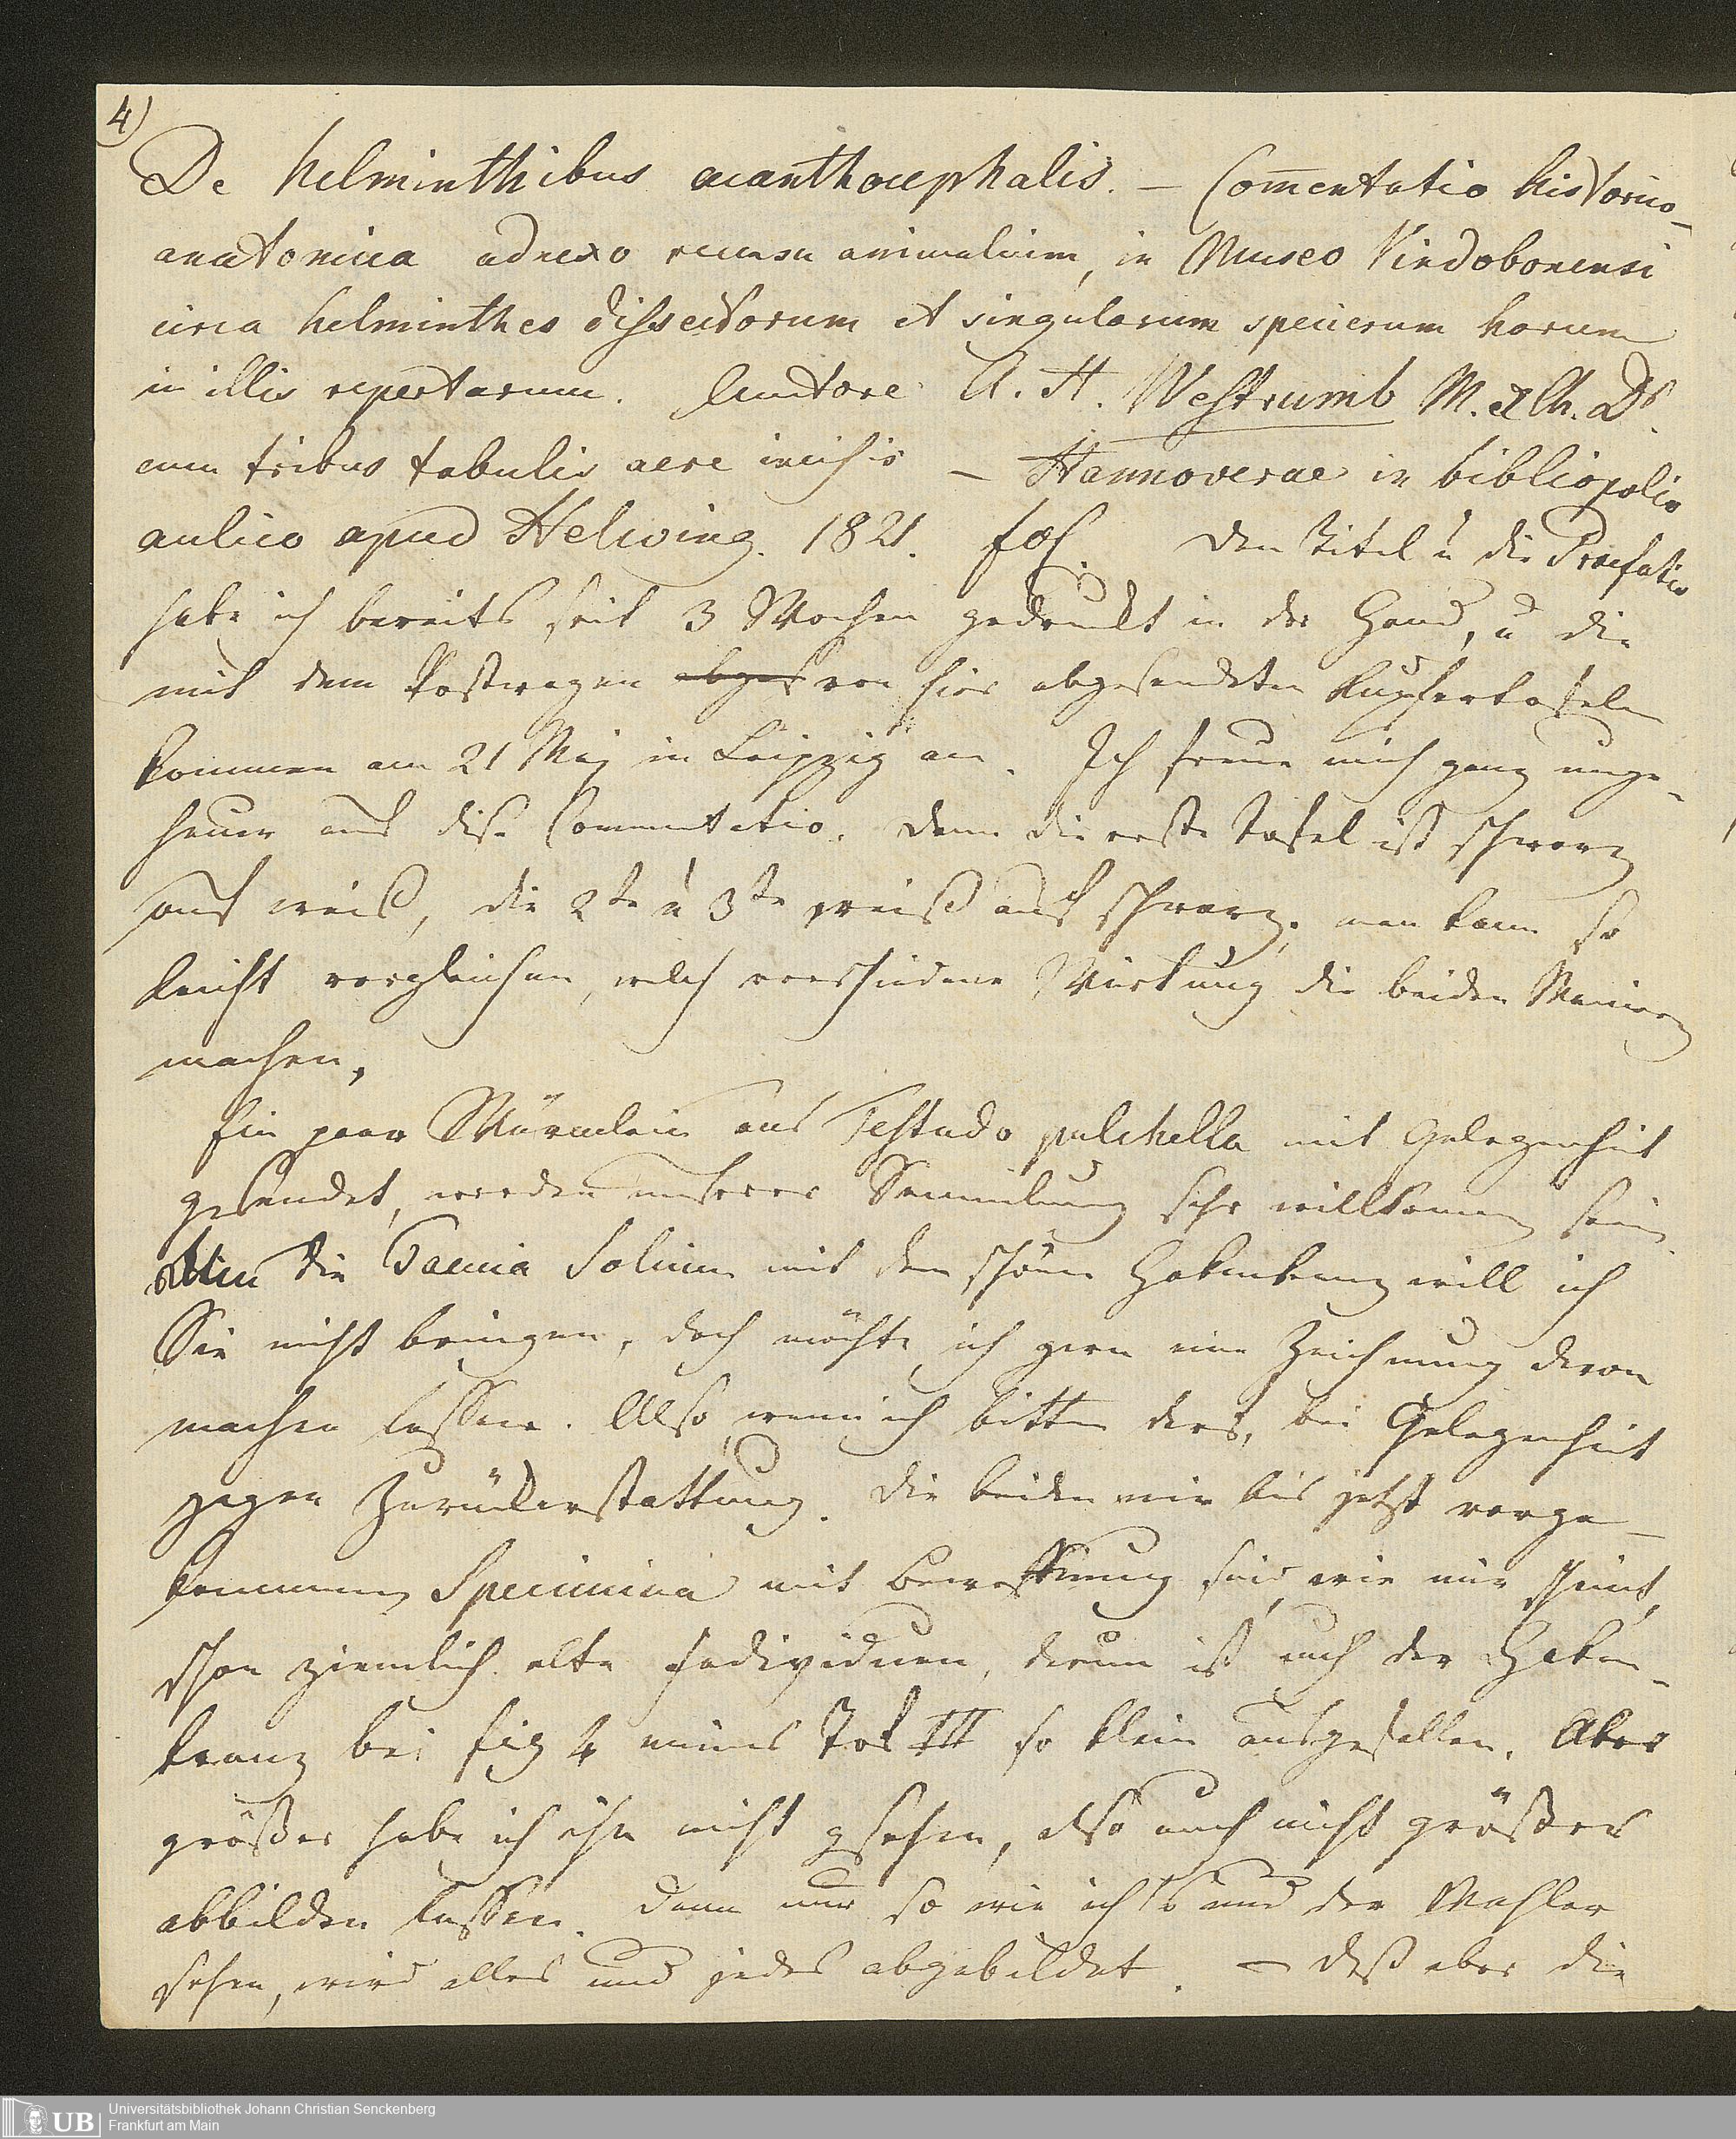 4)
De helminthibus acanthocephalis. – Com̅entatio historico-
anatomica adnexo recensu animalium, in Museo Vindobonensi
circa helminthes dissectorum et singularum specierum harum
in illis repertarum. Auctore A. H. Westrumb M. et Ch. Dr.
cum tribus tabulis aere incisis – Hannoverae in bibliopolio
aulico apud Helwing. 1821. fol. Den Titel u die Praefatio
habe ich bereits seit 3 Wochen gedruckt in der Hand, u die
mit dem Postwagen abges von hier abgesendeten Kupfertafeln
kommen am 21 Maj in Leipzig an. Ich freue mich ganz unge-
heuer auf diese Commentatio. Denn die erste Tafel ist schwarz
auf weiß, die 2te u 3te weiß auf schwarz; man kann so
leicht vergleichen, welch verschiedene Wirkung die beiden Manieren
machen.
Ein paar Würmlein aus Testudo pulchella mit Gelegenheit
gesendet, werden unserer Sammlung sehr willkommen sein
Um die Taenia Solium mit dem schönen Hakenkranz will ich
Sie nicht bringen, doch möchte ich gern eine Zeichnung davon
machen lassen. Also, wenn ich bitten darf, bei Gelegenheit
gegen Zurückerstattung. Die beiden mir bis jetzt vorge-
kommenen Specimina mit Bewaffnung sind, wie mir scheint,
schon ziemlich alte Individuen, darum ist auch der Haken-
kranz bei fig 4 meines Taf III so klein ausgefallen. Aber
größer habe ich ihn nicht gesehen, also auch nicht größer
abbilden lassen. Denn nur so wie ich's und der Mahler
sehen, wird alles und jedes abgebildet. – Daß aber die
UB
Universitätsbibliothek Johann Christian Senckenberg
Frankfurt am Main